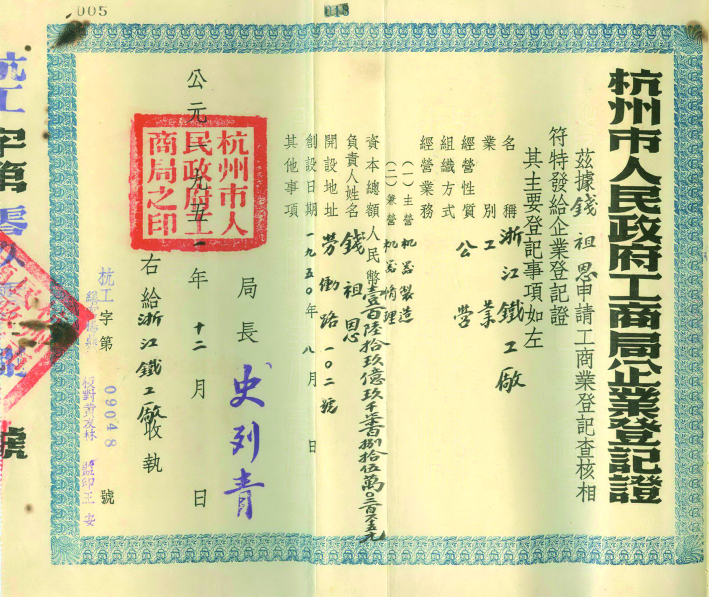 杭州市人民政府工商局企業登記證
茲據錢祖恩申請工商業登記查核相
符特發給企業登記證
其主要登記事項如左
名稱 浙江鐵工廠
業別 工業
經營性質 公營
組織方式
經營業務 (一)主營 機器製造
(二)兼營 機器修理
資本總額 人民幣壹百陸拾玖億玖千柒百捌拾伍萬〇三百十五元
負責人姓名 錢祖恩
開設地址 勞働路一〇二號
創設日期 一九五〇年八月 日
其他事項
局長 史列青
杭州市人
民政府工
商局之印
公元一九五一年十二月 日
右給浙江鐵工廠收執
杭工字第 09048 號
校對黃友林 監印王安
杭工字第
號
005